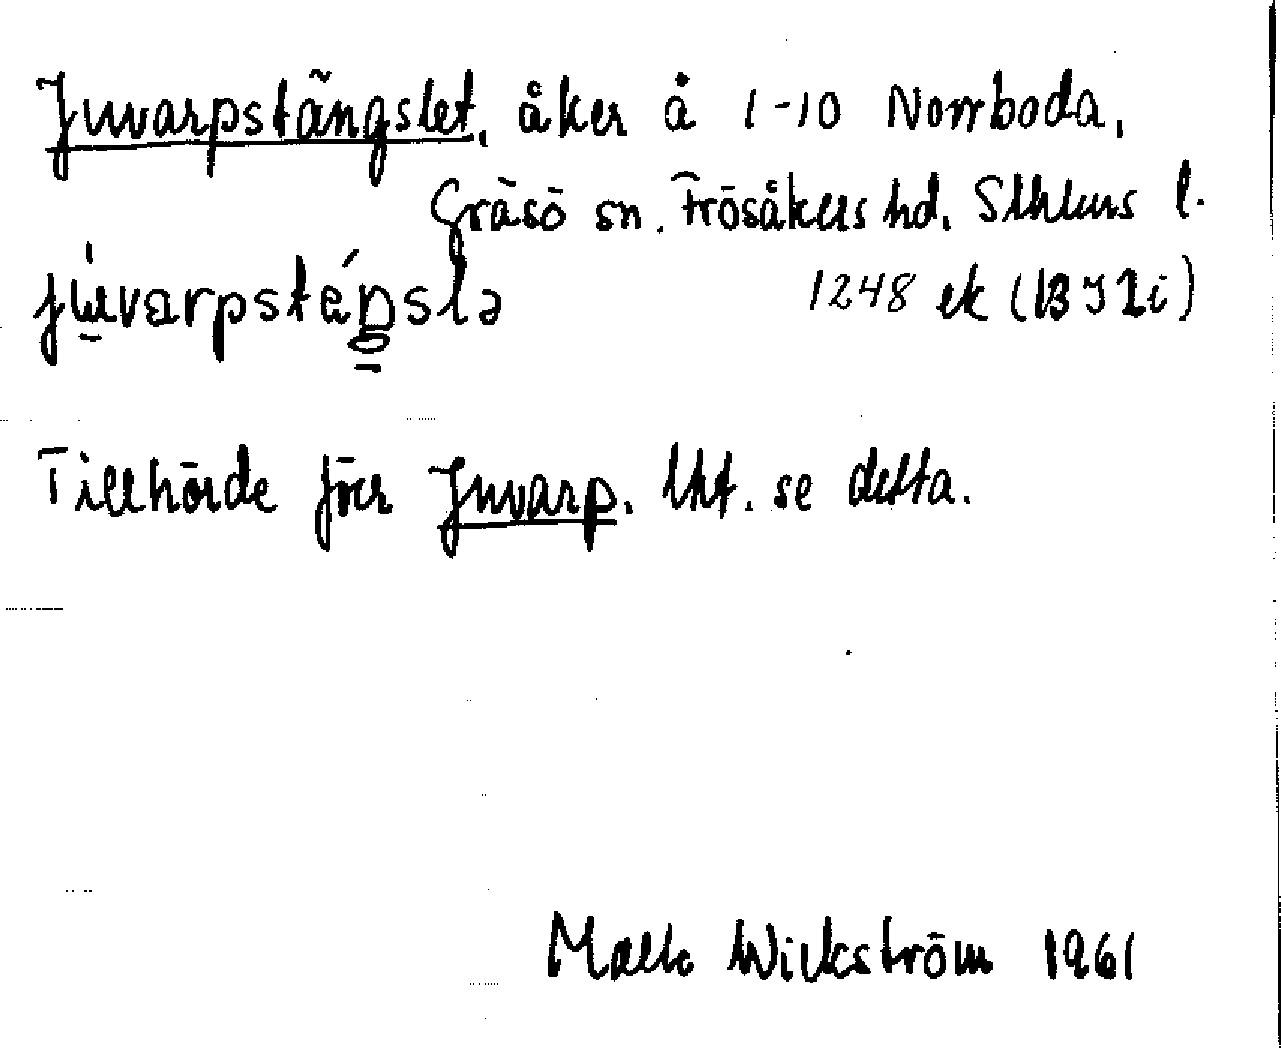 Juvarpstängslet, åker å 1-10 Norrboda,
Gräsö sn. Frösåkers hd. Sthlms l.
jùvarpstéŋslə 1248 ek (13 J 2i)
Tillhörde förr Juvarp. Utt. se detta.
Malte Wickström 1961